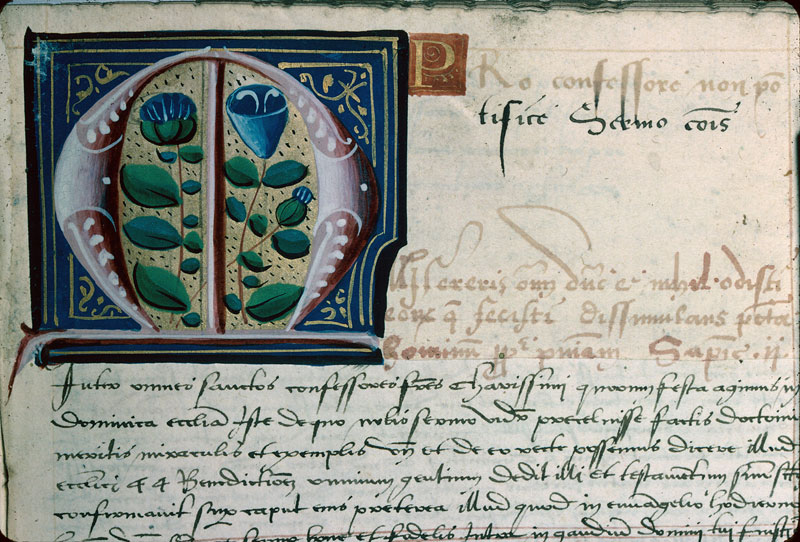 PRo confessore non pō
tifice Sermo cōis
Misereris oīm dñe et nihil odisti
eorum q̄ fecisti dissimulans pctā
hominum ꝓpt pniam Sapie. ij.
Inter omnes sanctos confessores frēs charissimi quorum festa agimus in
dominica ecclia Iste de quo nobis sermo videt precelluisse factis doctrina
meritis miraculis et exemplis Vn̄ et de eo recte possemus dicere illud
ecclici 44 Benedictionē omnium gentium dedit illi et testamentum suum
confirmavit supx caput eius preterea illud quod in euuangelio hodierno
serve bone et fidelis Intra in gaudium domini tui